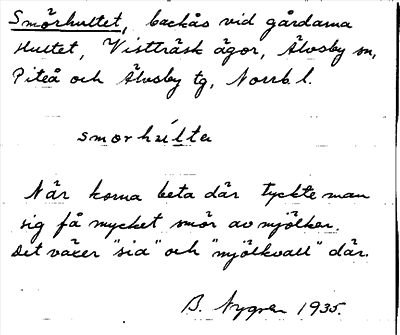 Smörhultet, backås vid gårdarna
Hultet, Vistträsk ägor, Älvsby sn,
Piteå och Älvsby tg, Norrb. l.
smorhulta
När korna beta där tyckte man
sig få mycket smör av mjölken.
Det växer "sia" och "mjölkvall" där.
B. Nygren 1935.